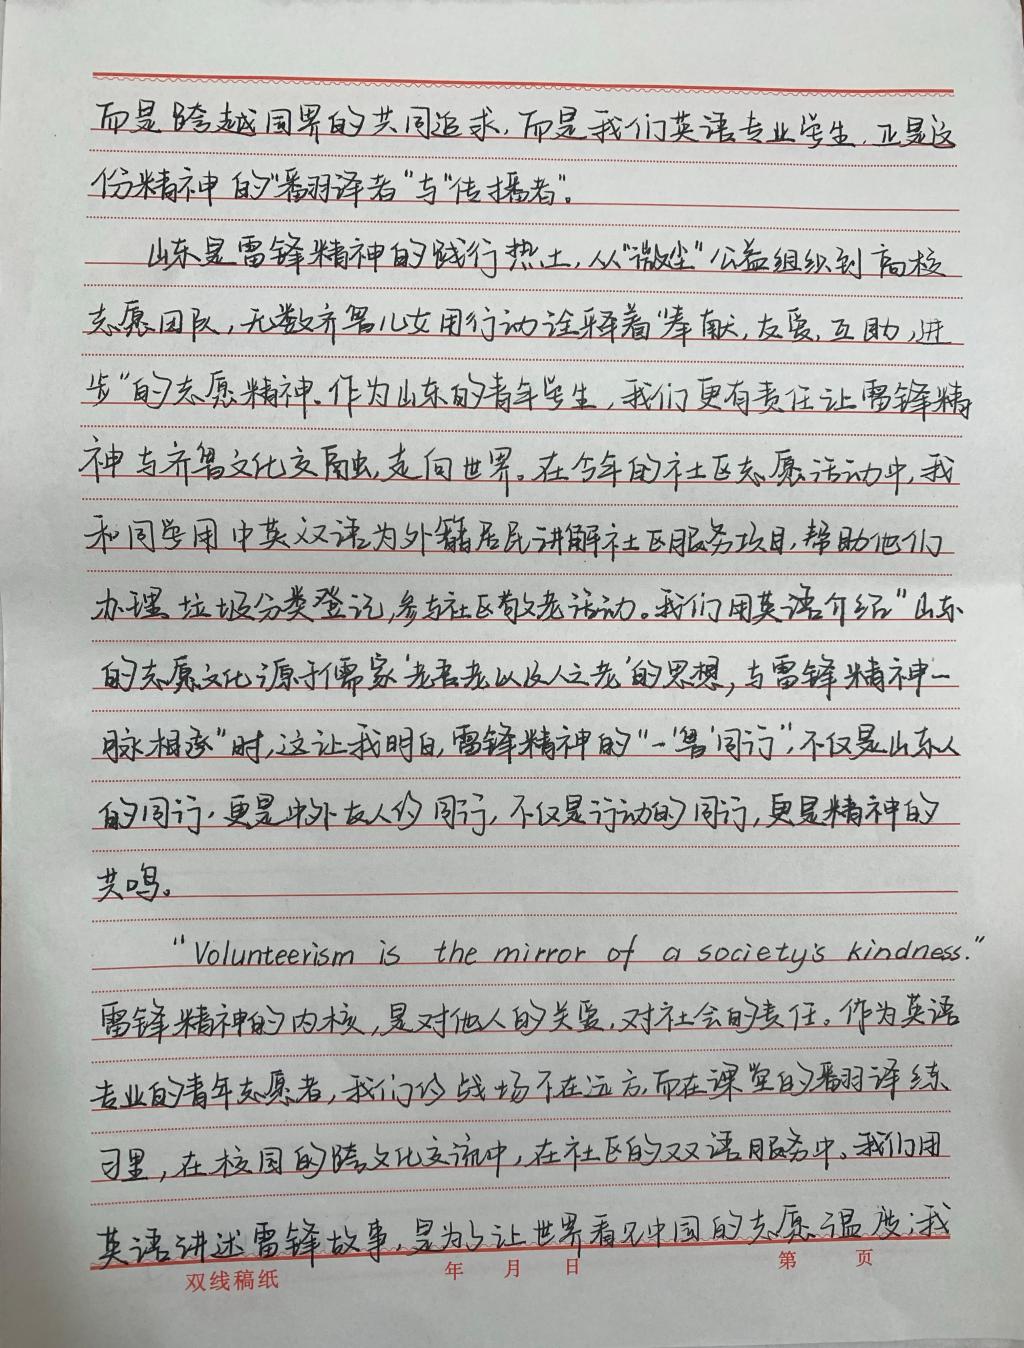 而是跨越国界的共同追求，而是我们英语专业学生，正是这
份精神的"翻译者"与"传播者"。
山东是雷锋精神的践行热土，从"微尘"公益组织到高校
志愿团队，无数齐鲁儿女用行动诠释着"奉献，友爱，互助，进
步"的志愿精神。作为山东的青年学生，我们更有责任让雷锋精
神与齐鲁文化交融，走向世界。在今年的社区志愿活动中，我
和同学用中英双语为外籍居民讲解社区服务项目，帮助他们
办理垃圾分类登记，参与社区敬老活动。我们用英语介绍"山东
的志愿文化源于儒家'老吾老以及人之老'的思想，与雷锋精神一
脉相承"时，这让我明白，雷锋精神的"一'鲁'同行"，不仅是山东人
的同行，更是中外友人的同行，不仅是行动的同行，更是精神的
共鸣。
"Volunteerism is the mirror of a society's kindness."
雷锋精神的内核，是对他人的关爱，对社会的责任。作为英语
专业的青年志愿者，我们的战场不在远方，而在课堂的翻译练
习里，在校园的跨文化交流中，在社区的双语服务中。我们用
英语讲述雷锋故事，是为了让世界看见中国的志愿温度；我
双线稿纸 年 月 日 第 页